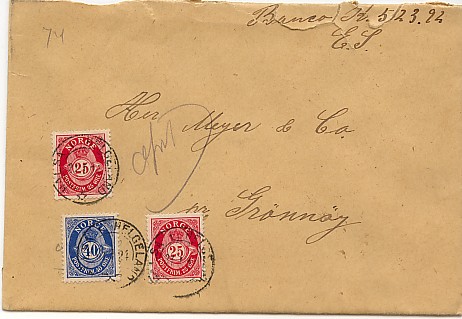 Banco Kr. 523.92
E.S.
74
Herr Meyer & Co.
pr Grönnöy
NORGE
25
POSTFRIM. 25 ØRE
NORGE
40
POSTFRIM 40 ØRE
HELGELAND
NORGE
25
POSTFRIM 25 ØRE